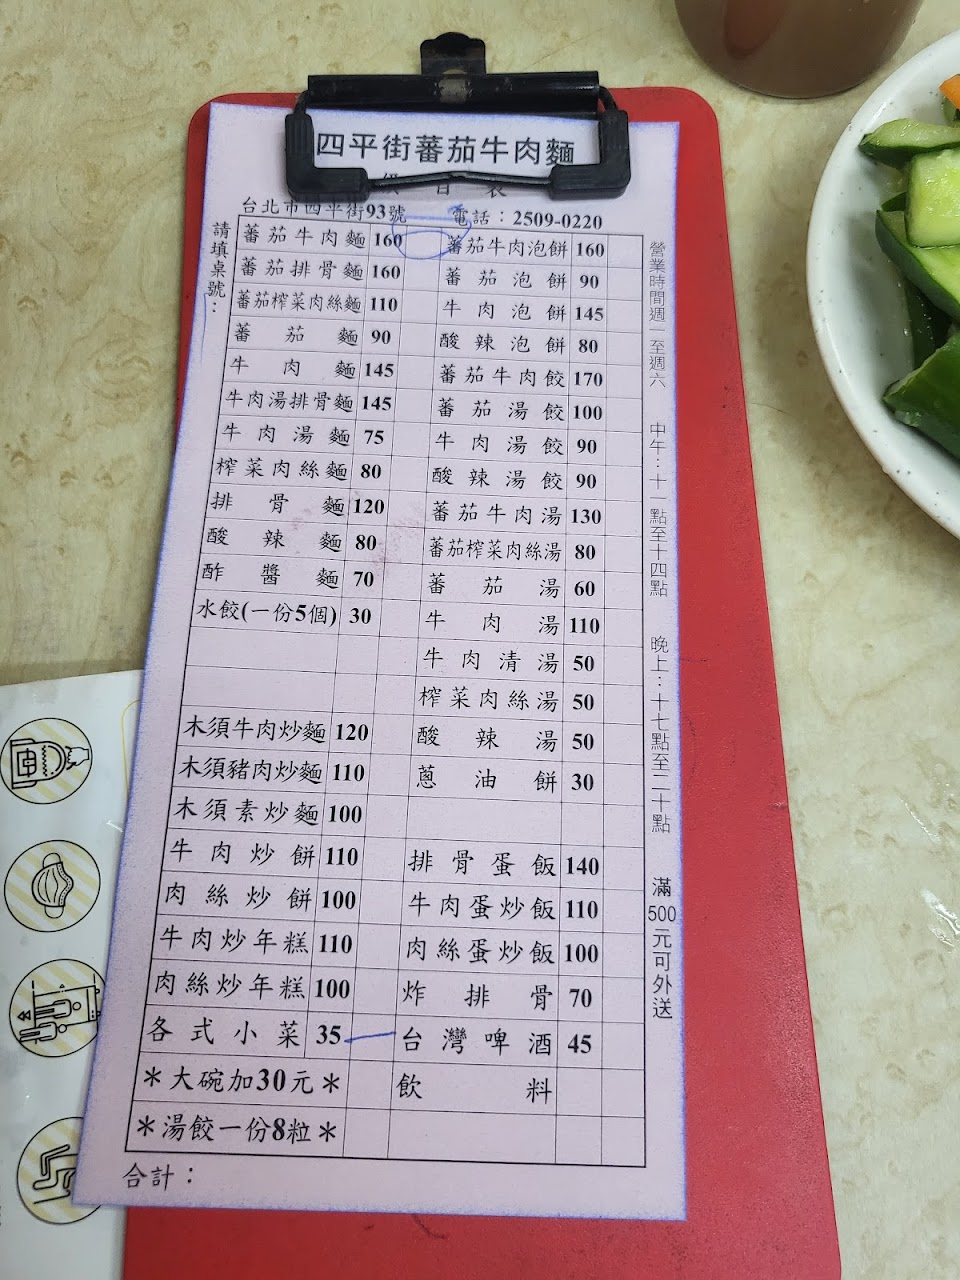 四平街蕃茄牛肉麵
台北市四平街93號 電話：2509-0220
請填桌號：
蕃茄牛肉麵 160 蕃茄牛肉泡餅 160
蕃茄排骨麵 160 蕃茄泡餅 90
蕃茄榨菜肉絲麵 110 牛肉泡餅 145
蕃茄麵 90 酸辣泡餅 80
牛肉麵 145 蕃茄牛肉餃 170
牛肉湯排骨麵 145 蕃茄湯餃 100
牛肉湯麵 75 牛肉湯餃 90
榨菜肉絲麵 80 酸辣湯餃 90
排骨麵 120 蕃茄牛肉湯 130
酸辣麵 80 蕃茄榨菜肉絲湯 80
酢醬麵 70 蕃茄湯 60
水餃(一份5個) 30 牛肉湯 110
牛肉清湯 50
榨菜肉絲湯 50
木須牛肉炒麵 120 酸辣湯 50
木須豬肉炒麵 110 蔥油餅 30
木須素炒麵 100
牛肉炒餅 110 排骨蛋飯 140
肉絲炒餅 100 牛肉蛋炒飯 110
牛肉炒年糕 110 肉絲蛋炒飯 100
肉絲炒年糕 100 炸排骨 70
各式小菜 35 台灣啤酒 45
＊大碗加30元＊ 飲料
＊湯餃一份8粒＊
合計：
營業時間週一至週六 中午：十一點至十四點 晚上：十七點至二十點 滿500元可外送